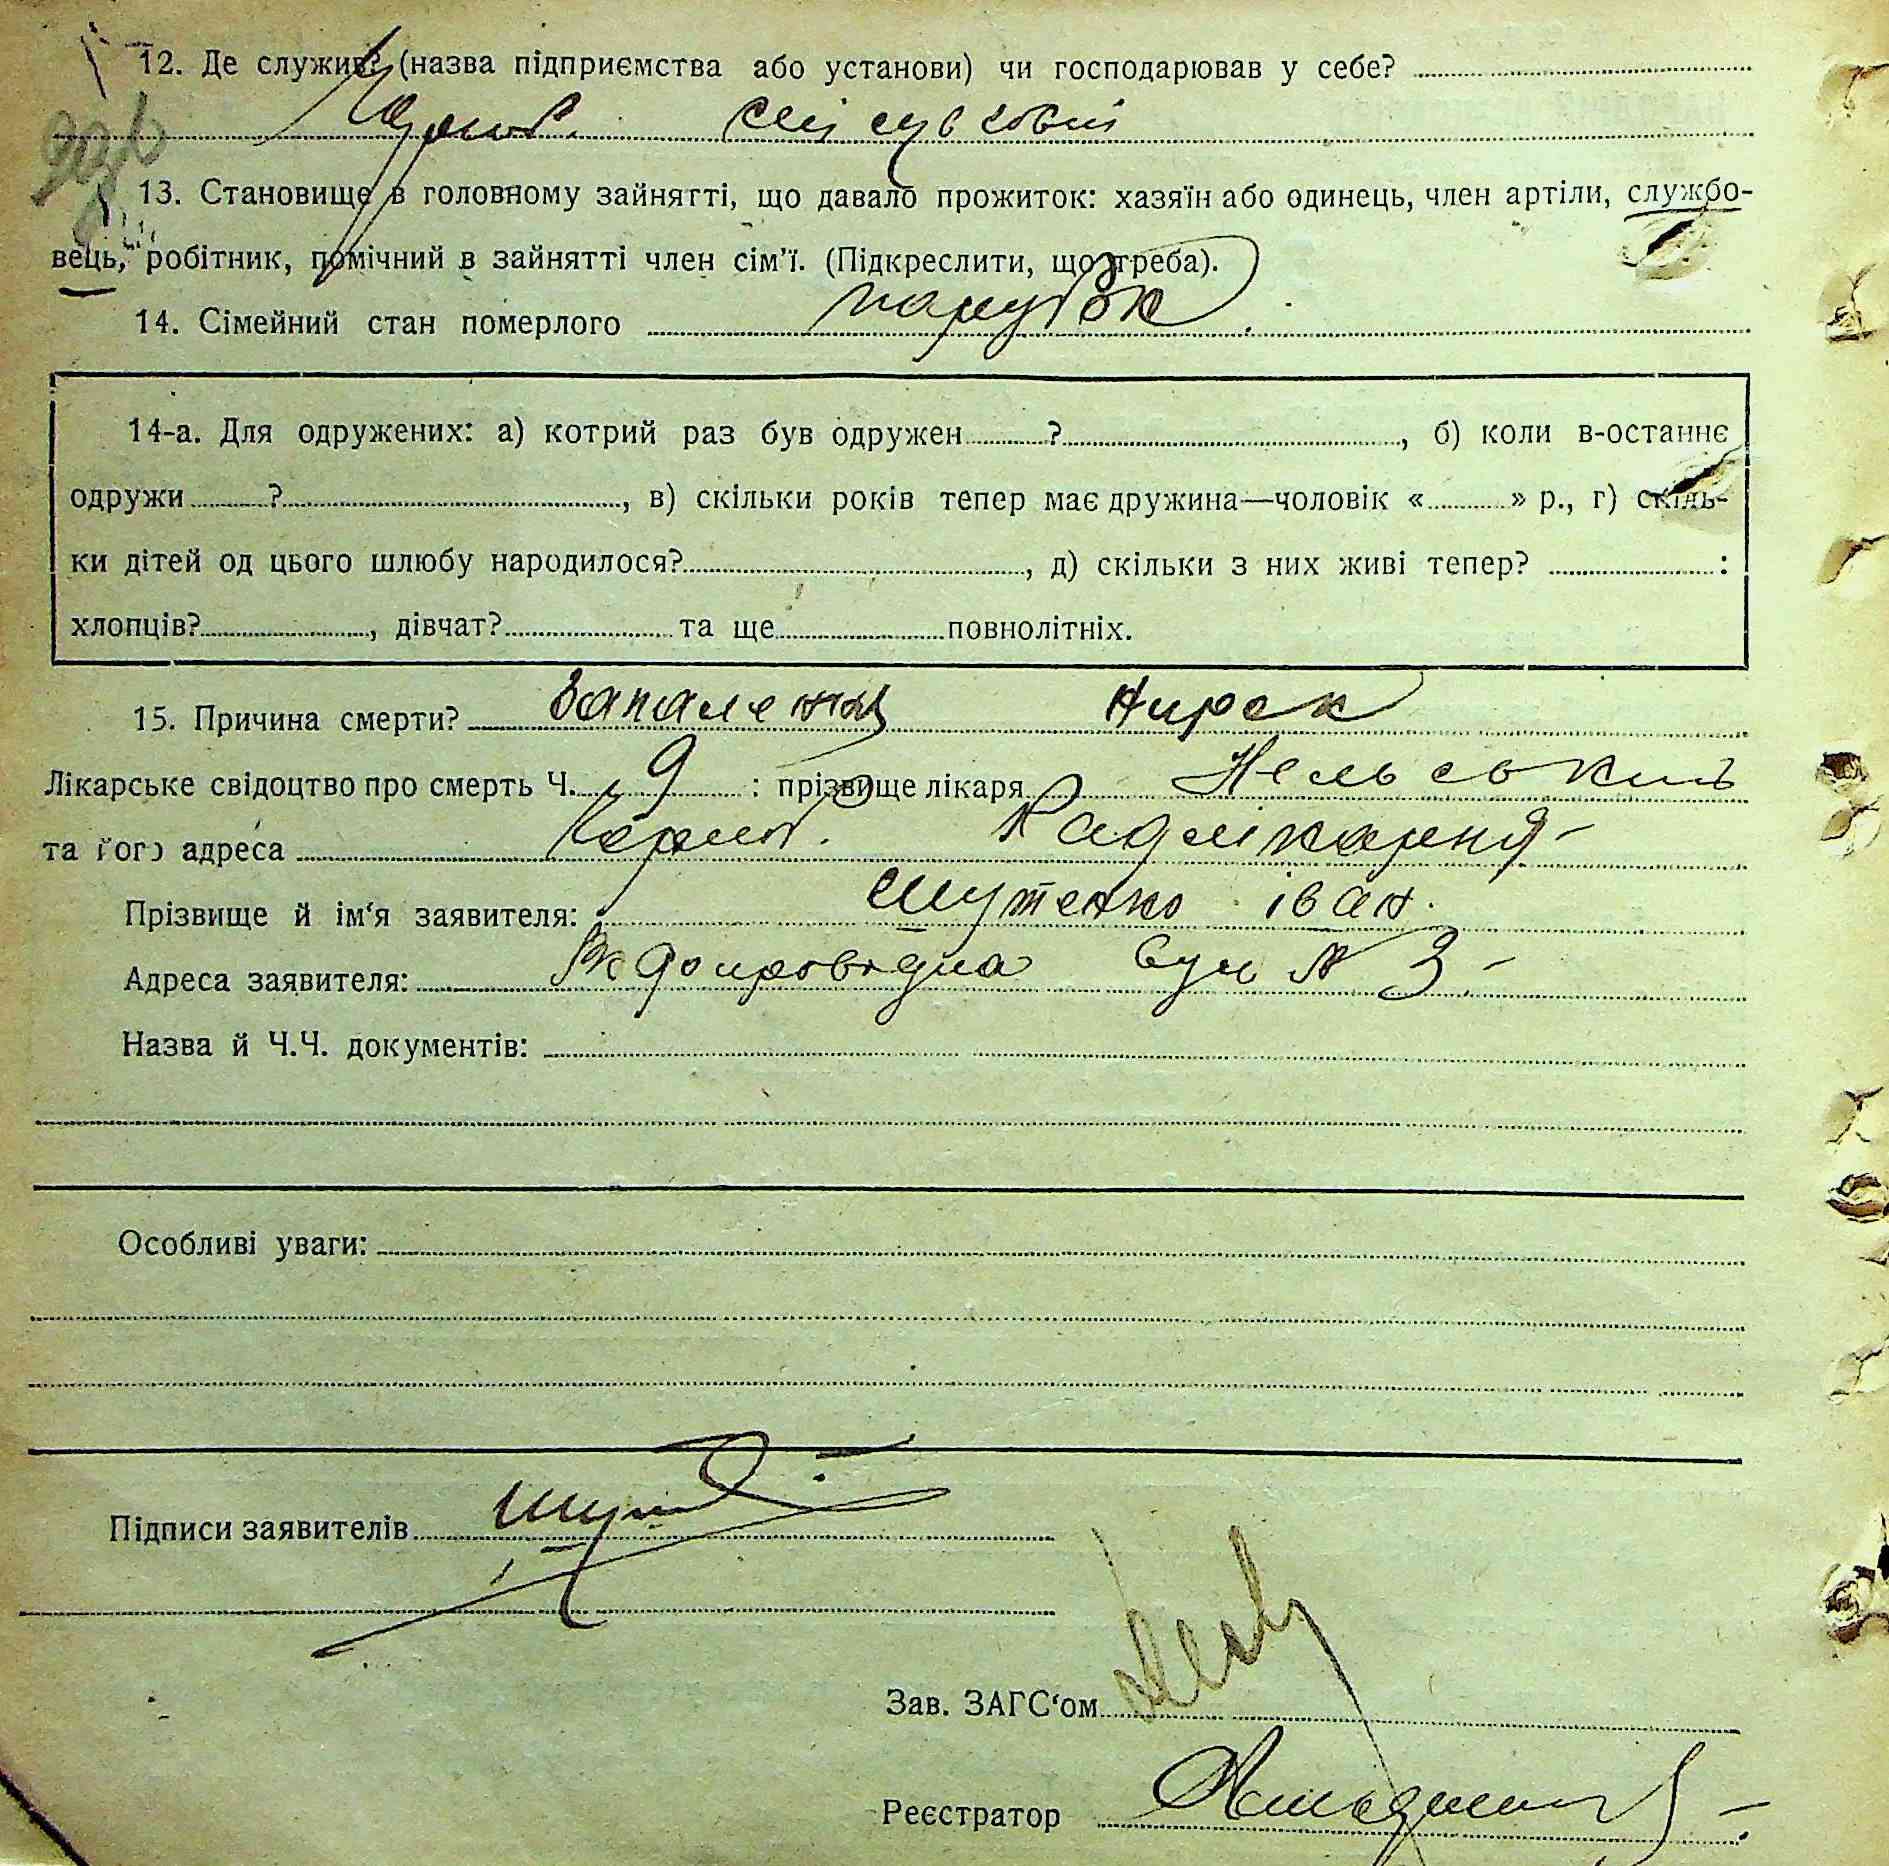 12. Де служив? (назва підприємства або установи) чи господарював у себе?
13. Становище в головному зайнятті, що давало прожиток: хазяїн або одинець, член артіли, службо-
вець, робітник, помічний в зайнятті член сім'ї. (Підкреслити, що треба).
14. Сімейний стан померлого парубок
14-а. Для одружених: а) котрий раз був одружен ? , б) коли в-останнє
одружи ? , в) скільки років тепер має дружина—чоловік « » р., г) скіль-
ки дітей од цього шлюбу народилося? , д) скільки з них живі тепер? :
хлопців? , дівчат? та ще повнолітніх.
15. Причина смерти? Запалення нирок
Лікарське свідоцтво про смерть Ч. 9 : прізвище лікаря
та його адреса Радлікарня
Прізвище й ім'я заявителя: Шутенко іван.
Адреса заявителя: Водопровідна вул № 3
Назва й Ч.Ч. документів:
Особливі уваги:
Підписи заявителів
Зав. ЗАГС'ом
Реєстратор